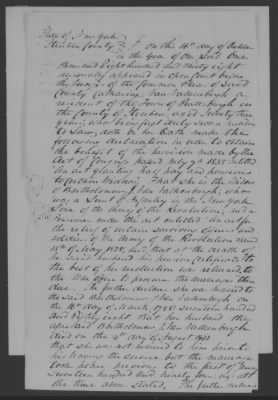 State of New York
Steuben County } SS On the 16th day of October
in the Year of Our Lord One
thousand Eight hundred and thirty eight
personally appeared in open Court before
the Judges of the Common Pleas of said
County Catharine Van Valkenburgh a
resident of the Town of
the County of Steuben aged
years, who being first duly sworn according
to Law, doth on her Oath make the
following declaration in order to obtain
the benefit of the provision made by the
Act of Congress passed July 7th 1838 entitled
An act granting half pay and pensions
to certain widows. That she is the Widow
of Bartholomew J. Van Valkenburgh, who
was a Lieut of Infantry in the New York
Line of the Army of the Revolution, and a
Pensioner under the act entitled An act for
the relief of certain surviving officers and
soldiers of the Army of the Revolution passed
15th of May 1828, and that at the death of
her said husband his pension certificate to
the best of her recollection was returned to
the War office to procure the moneys then
due. She further declares she was married to
the said Bartholomew J. Van Valkenburgh on
the day of March 1788 seventeen hundred
and eighty eight that her husband the
aforesaid Bartholomew J. Van Valkenburgh
died on the 4th day of August 1831
that she was not married to him prior to
his leaving the service but the marriage
took place previous to the first of January
Seventeen hundred and ninety four, by
the time above stated. She further